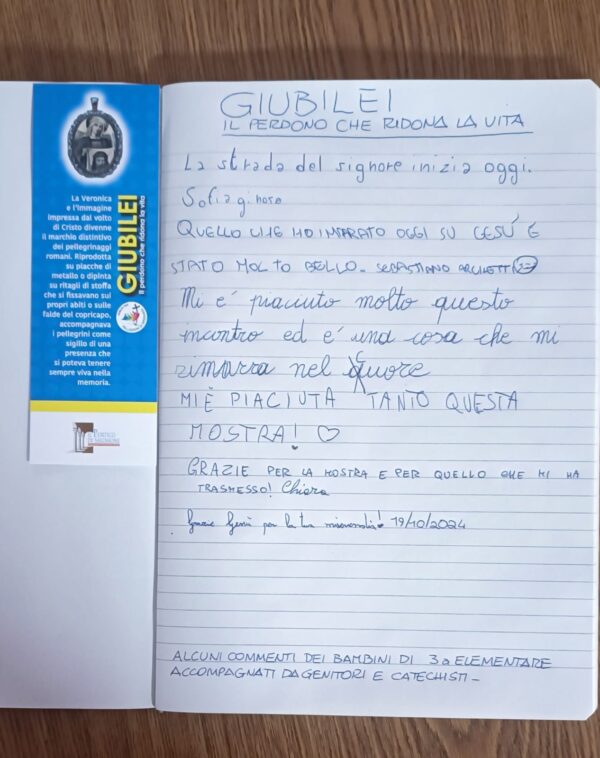 La Veronica
e l'Immagine
impressa dal volto
di Cristo divenne
il marchio distintivo
dei pellegrinaggi
romani. Riprodotta
su placche di
metallo o dipinta
su ritagli di stoffa
che si fissavano sui
propri abiti o sulle
falde del copricapo,
accompagnava
i pellegrini come
sigillo di una
presenza che
si poteva tenere
sempre viva nella
memoria.
GIUBILEI
Il perdono che ridona la vita
GIUBILEI
IL PERDONO CHE RIDONA LA VITA
La strada del signore inizia oggi.
Sofia
QUELLO CHE HO IMPARATO OGGI SU GESÙ È
STATO MOLTO BELLO. SEBASTIANO
Mi è piaciuto molto questo
incontro ed è una cosa che mi
rimarra nel quore
MI È PIACIUTA TANTO QUESTA
MOSTRA! ♡
GRAZIE PER LA MOSTRA E PER QUELLO CHE MI HA
TRASMESSO! Chiara
Grazie Gesù per la tua misericordia! 19/10/2024
ALCUNI COMMENTI DEI BAMBINI DI 3a ELEMENTARE
ACCOMPAGNATI DA GENITORI E CATECHISTI -